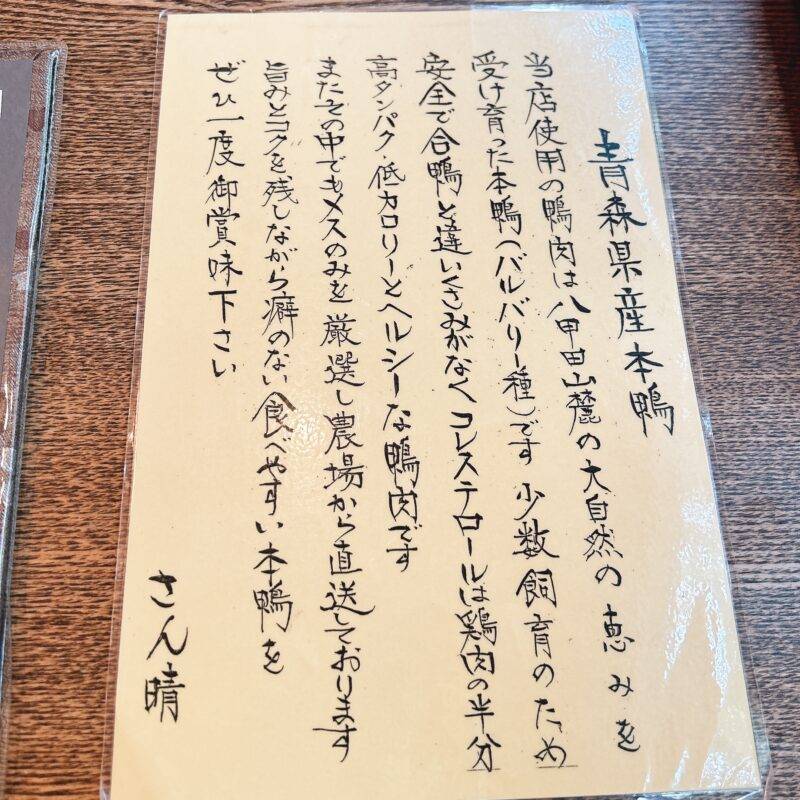 青森県産本鴨
当店使用の鴨肉は八甲田山麓の大自然の恵みを
受け育った本鴨(バルバリー種)です 少数飼育のため
安全で合鴨と違いくさみがなくコレステロールは鶏肉の半分
高タンパク・低カロリーとヘルシーな鴨肉です
またその中でもメスのみを厳選し農場から直送しております
旨みとコクを、残しながら癖のない食べやすい本鴨を
ぜひ一度御賞味下さい
さん晴